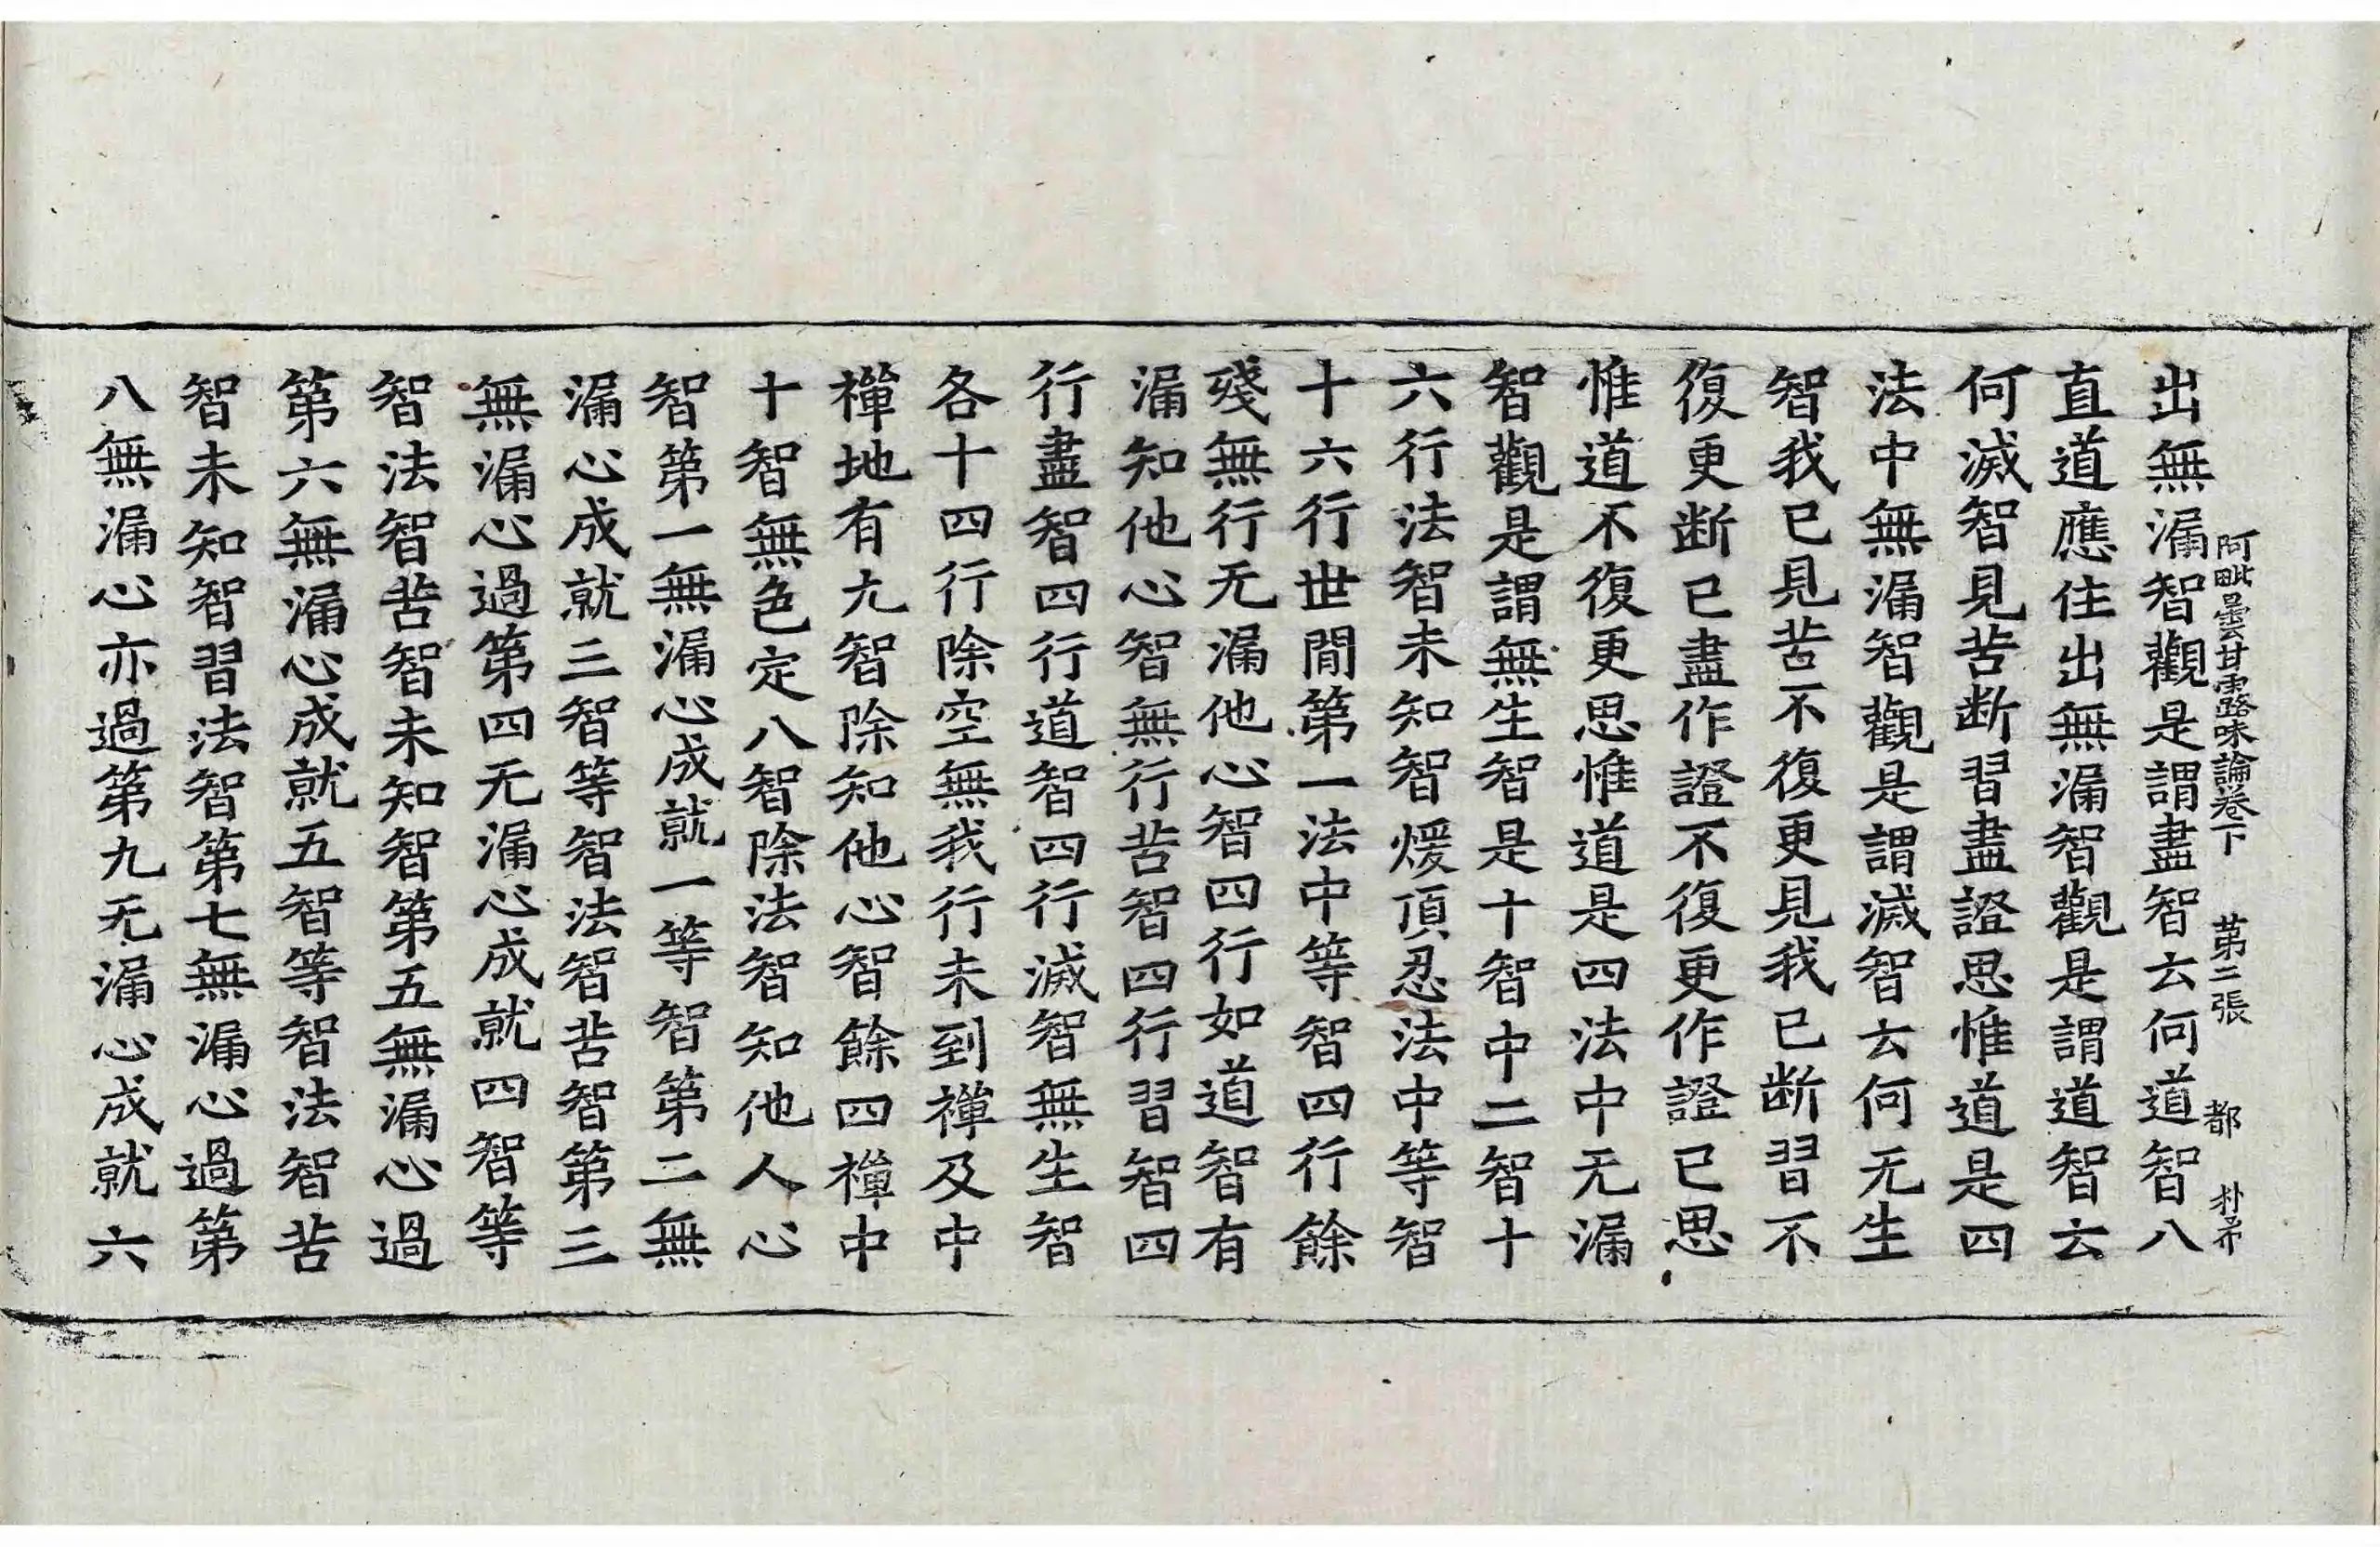 阿毗曇甘露味論卷下 第二張 都
出無漏智觀是謂盡智云何道智八
直道應住出無漏智觀是謂道智云
何滅智見苦断習盡證思惟道是四
法中無漏智觀是謂滅智云何无生
智我已見苦不復更見我已断習不
復更断已盡作證不復更作證已思
惟道不復更思惟道是四法中无漏
智觀是謂無生智是十智中二智十
六行法智未知智煖頂忍法中等智
十六行世間第一法中等智四行餘
殘無行无漏他心智四行如道智有
漏知他心智無行苦智四行習智四
行盡智四行道智四行滅智無生智
各十四行除空無我行未到禪及中
禪地有九智除知他心智餘四禪中
十智無色定八智除法智知他人心
智第一無漏心成就一等智第二無
漏心成就三智等智法智苦智第三
無漏心過第四无漏心成就四智等
智法智苦智未知智第五無漏心過
第六無漏心成就五智等智法智苦
智未知智習法智第七無漏心過第
八無漏心亦過第九无漏心成就六